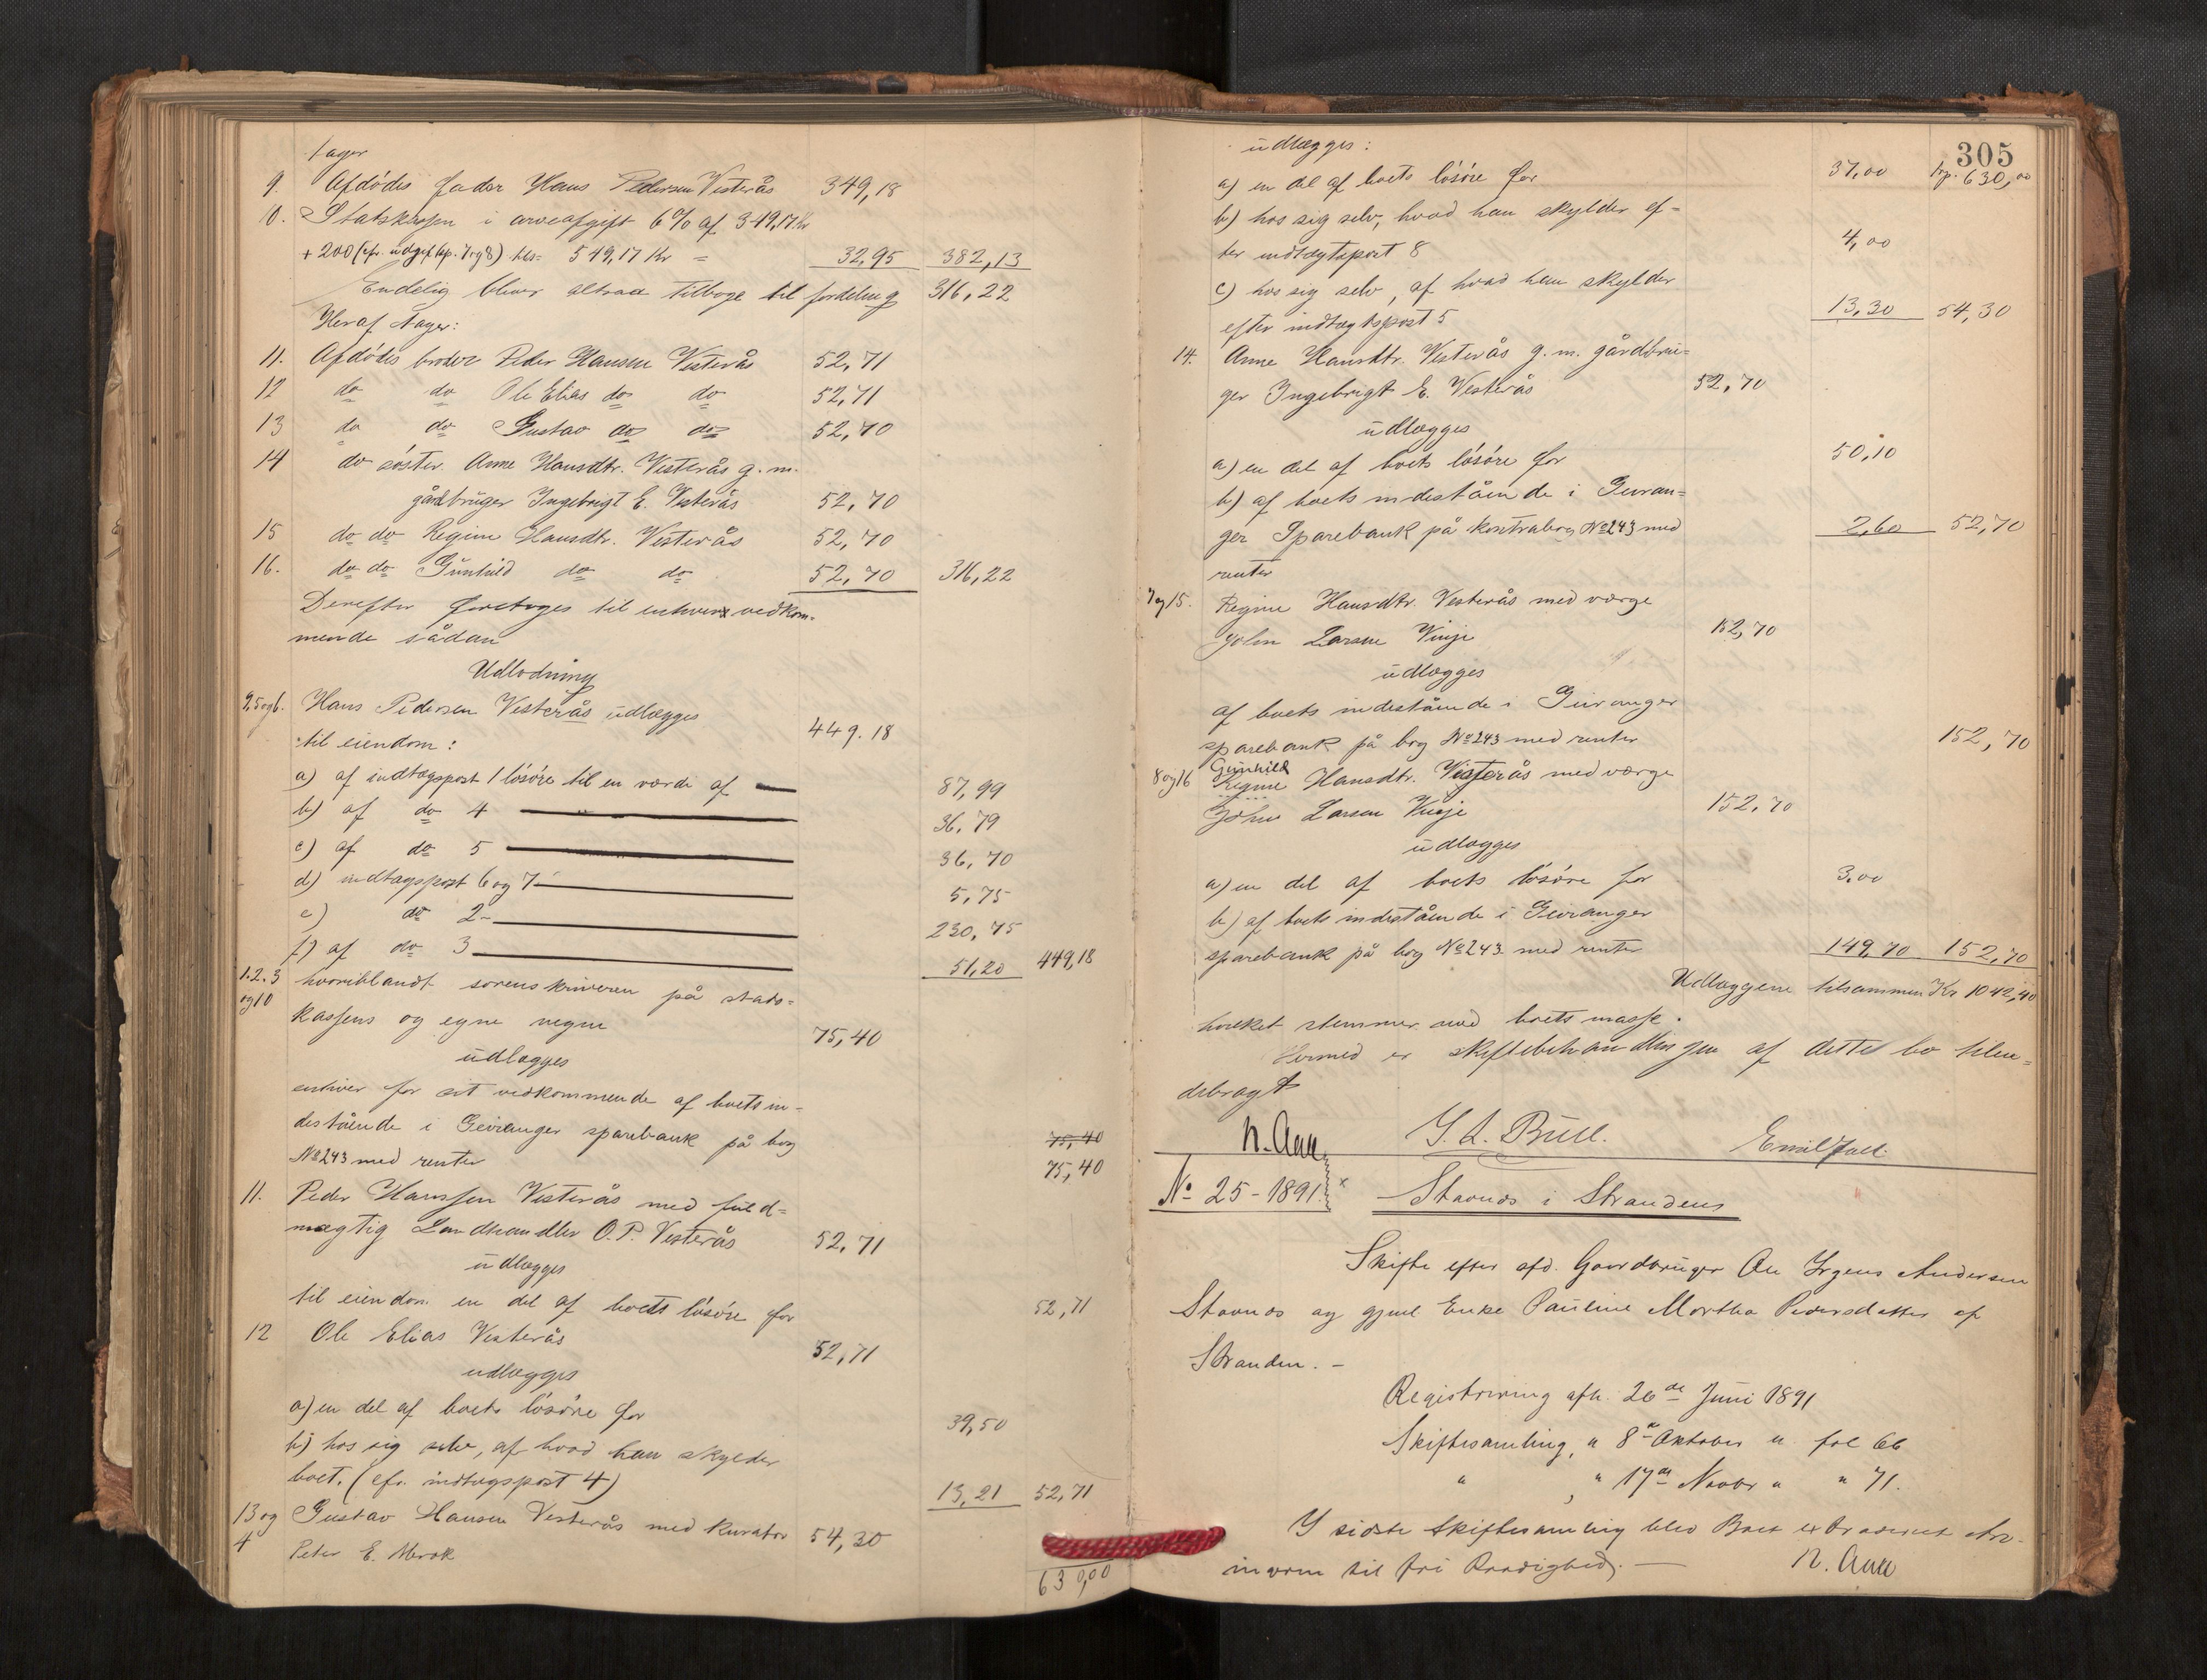 tager
9. Afdødes fader Hans Pedersen Vesterås 349,18
10. Statskassen i arveafgift 6% af 349,17 Kr
+ 200 (cfr. udgiftsp. 7 og 8) hs= 549,17 Kr = 32,95 382,13
Endelig bliver altsaa tilbage til fordeling 316,22
Heraf tager:
11. Afdødes broder Peder Hansen Vesterås 52,71
12 do do Ole Elias do do 52,71
13 do do Gustav do do 52,70
14 do søster Anne Hansdtr. Vesterås g. m.
gårdbruger Ingebrigt E. Vesterås 52,70
15 do do Regine Hansdtr. Vesterås 52,70
16. do do Gunhild do do 52,70 316,22
Derefter foretages til enhver vedkom-
mende sådan
Udlodning
9,5 og 6. Hans Pedersen Vesterås udlægges
til eiendom: 449.18
a) af indtægspost 1 løsøre til en værdi af 87,99
b) af do 4 36,79
c) af do 5 36,70
d) indtægspost 6 og 7 5,75
e) do 2 230,75
f) af do 3 51,20 449,18
1.2.3 hvoriblandt sorenskriveren på stats-
og 10 kassens og egne vegne 75,40
udlægges
enhver for sit vedkommende af boets in-
destående i Geiranger sparebank på bog 75,40
No 243 med renter 75,40
11. Peder Hanssen Vesterås med fuld-
mægtig Landhandler O. P. Vesterås 52,71
udlægges
til eiendom en del af boets løsøre for 52,71
12 Ole Elias Vesterås 52,71
udlægges
a) en del af boets løsøre for 39,50
b) hos sig selv, af hvad han skylder
boet. (cfr. indtægspost 4) 13,21 52,71
13 og Gustav Hansen Vesterås med kurator 54,30
4 Peter E. Merok
630,00
305
udlægges: Trp. 630,00
a) en del af boets løsøre for 37,00
b) hos sig selv, hvad han skylder ef-
ter indtægtspost 8 4,00
c) hos sig selv, af hvad han skylder
efter indtægtspost 5 13,30 54,30
14. Anne Hansdtr. Vesterås g. m. gårdbru-
ger Ingebrigt E. Vesterås 52,70
udlægges
a) en del af boets løsøre for 50,10
b) af boets indestående i Geiran-
ger Sparebank på kontrabog No 243 med 2,60 52,70
renter
7 og 15. Regine Hansdtr. Vesterås med værge
John Larsen Vinje 152,70
udlægges
af boets indestående i Geiranger
sparebank på bog No 243 med renter 152,70
Gunhild
8 og 16 Regine Hansdtr. Vesterås med værge
John Larsen Vinje 152,70
udlægges
a) en del af boets løsøre for 3,00
b) af boets indestående i Geiranger
sparebank på bog No 243 med renter 149,70 152,70
Udlæggene tilsammen Kr 1042,40
hvilket stemmer med boets masse.
Hermed er skiftebehandlingen af dette bo tilen-
debragt
N. Aall J. L. Bull. Emil Juell.
No 25 - 1891. Stavnæs i Stranden
Skifte efter afd. Gaardbruger Ole Jørgens Andersen
Stavnæs og gjenl. Enke Pauline Martha Pedersdatter af
Stranden. -
Registrering afh. 26de Juni 1891
Skiftesamling " 8de Oktober " fol 66
" " 17de Novbr " " 71.
I sidste Skiftesamling blev Boet extraderet Ar-
ingerne til fri Raadighed. - N. Aall